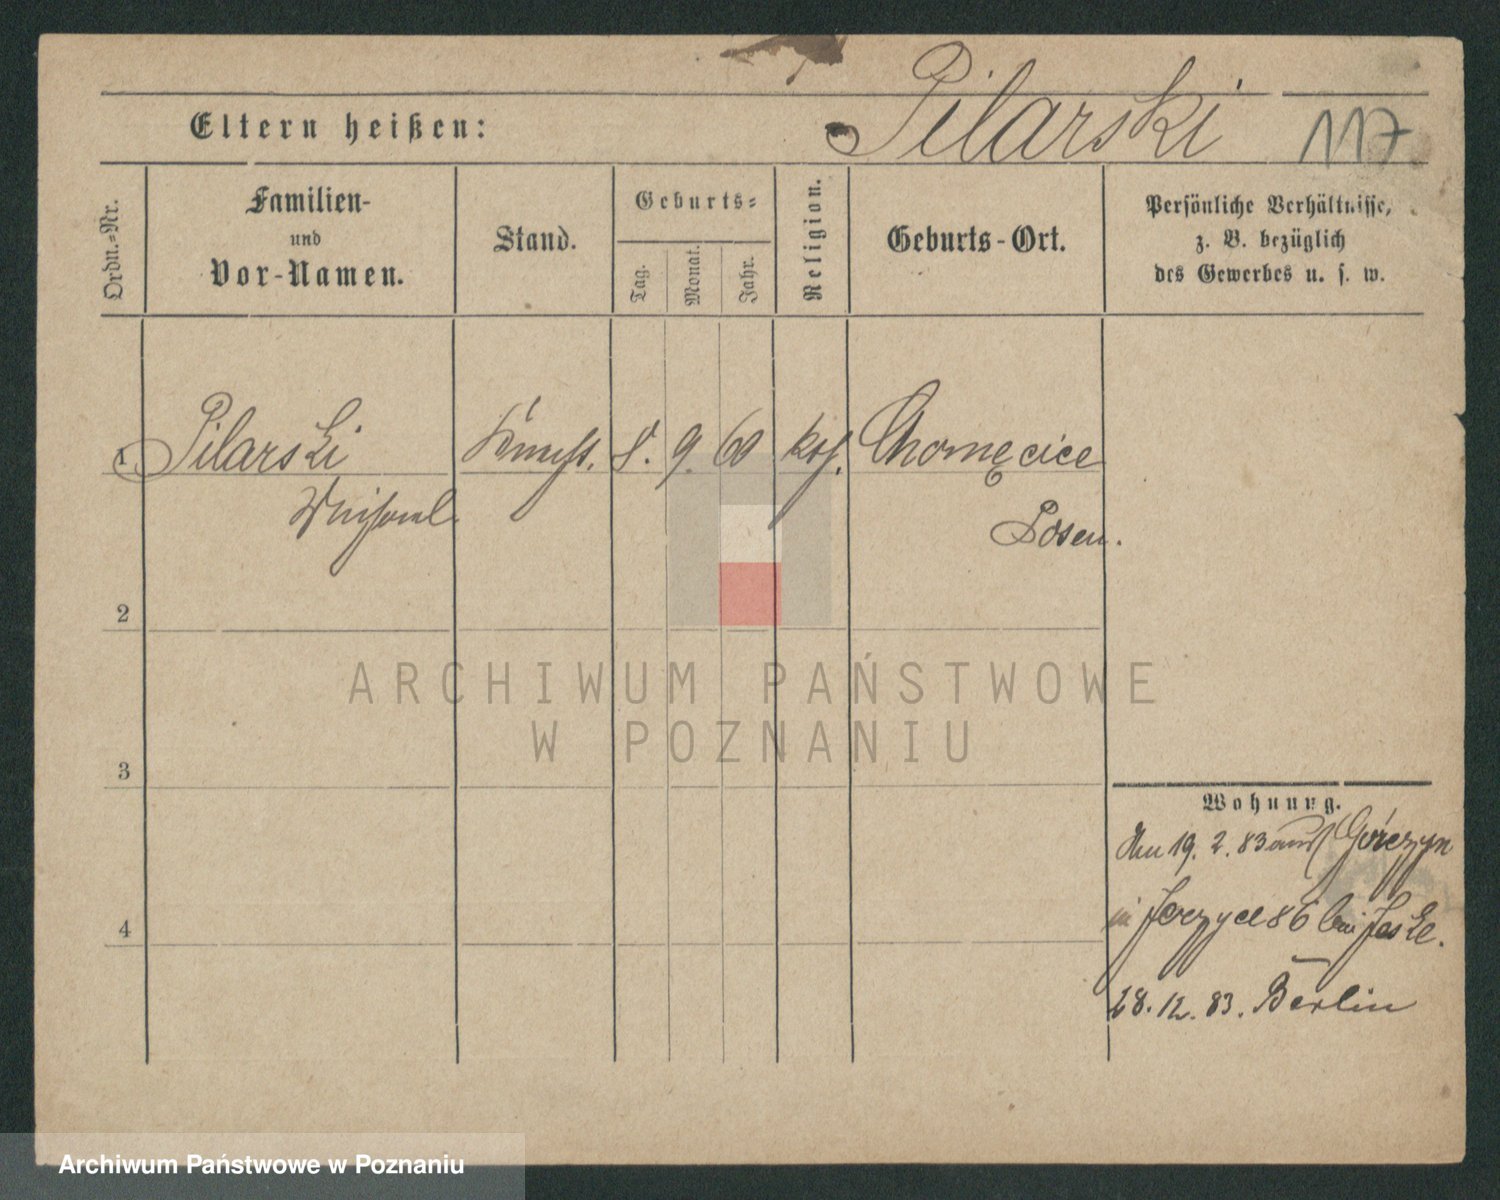 Pilarski 117
Eltern heißen:
Ordn.=Nr.
Familien-
und
Vor-Namen.
Stand.
Geburts=
Tag.
Monat.
Jahr.
Religion.
Geburts-Ort.
Persönliche Verhältnisse,
z. B. bezüglich
des Gewerbes u. s. w.
1 Pilarski 8. 9. 60 kth. Chomęcice
Posen.
2
3
4
ARCHIWUM PAŃSTWOWE
W POZNANIU
Wohnung.
19. 2. 83 aus Górczyn
in Jerzyce 86 bei Jaske.
28. 12. 83. Berlin
Archiwum Państwowe w Poznaniu